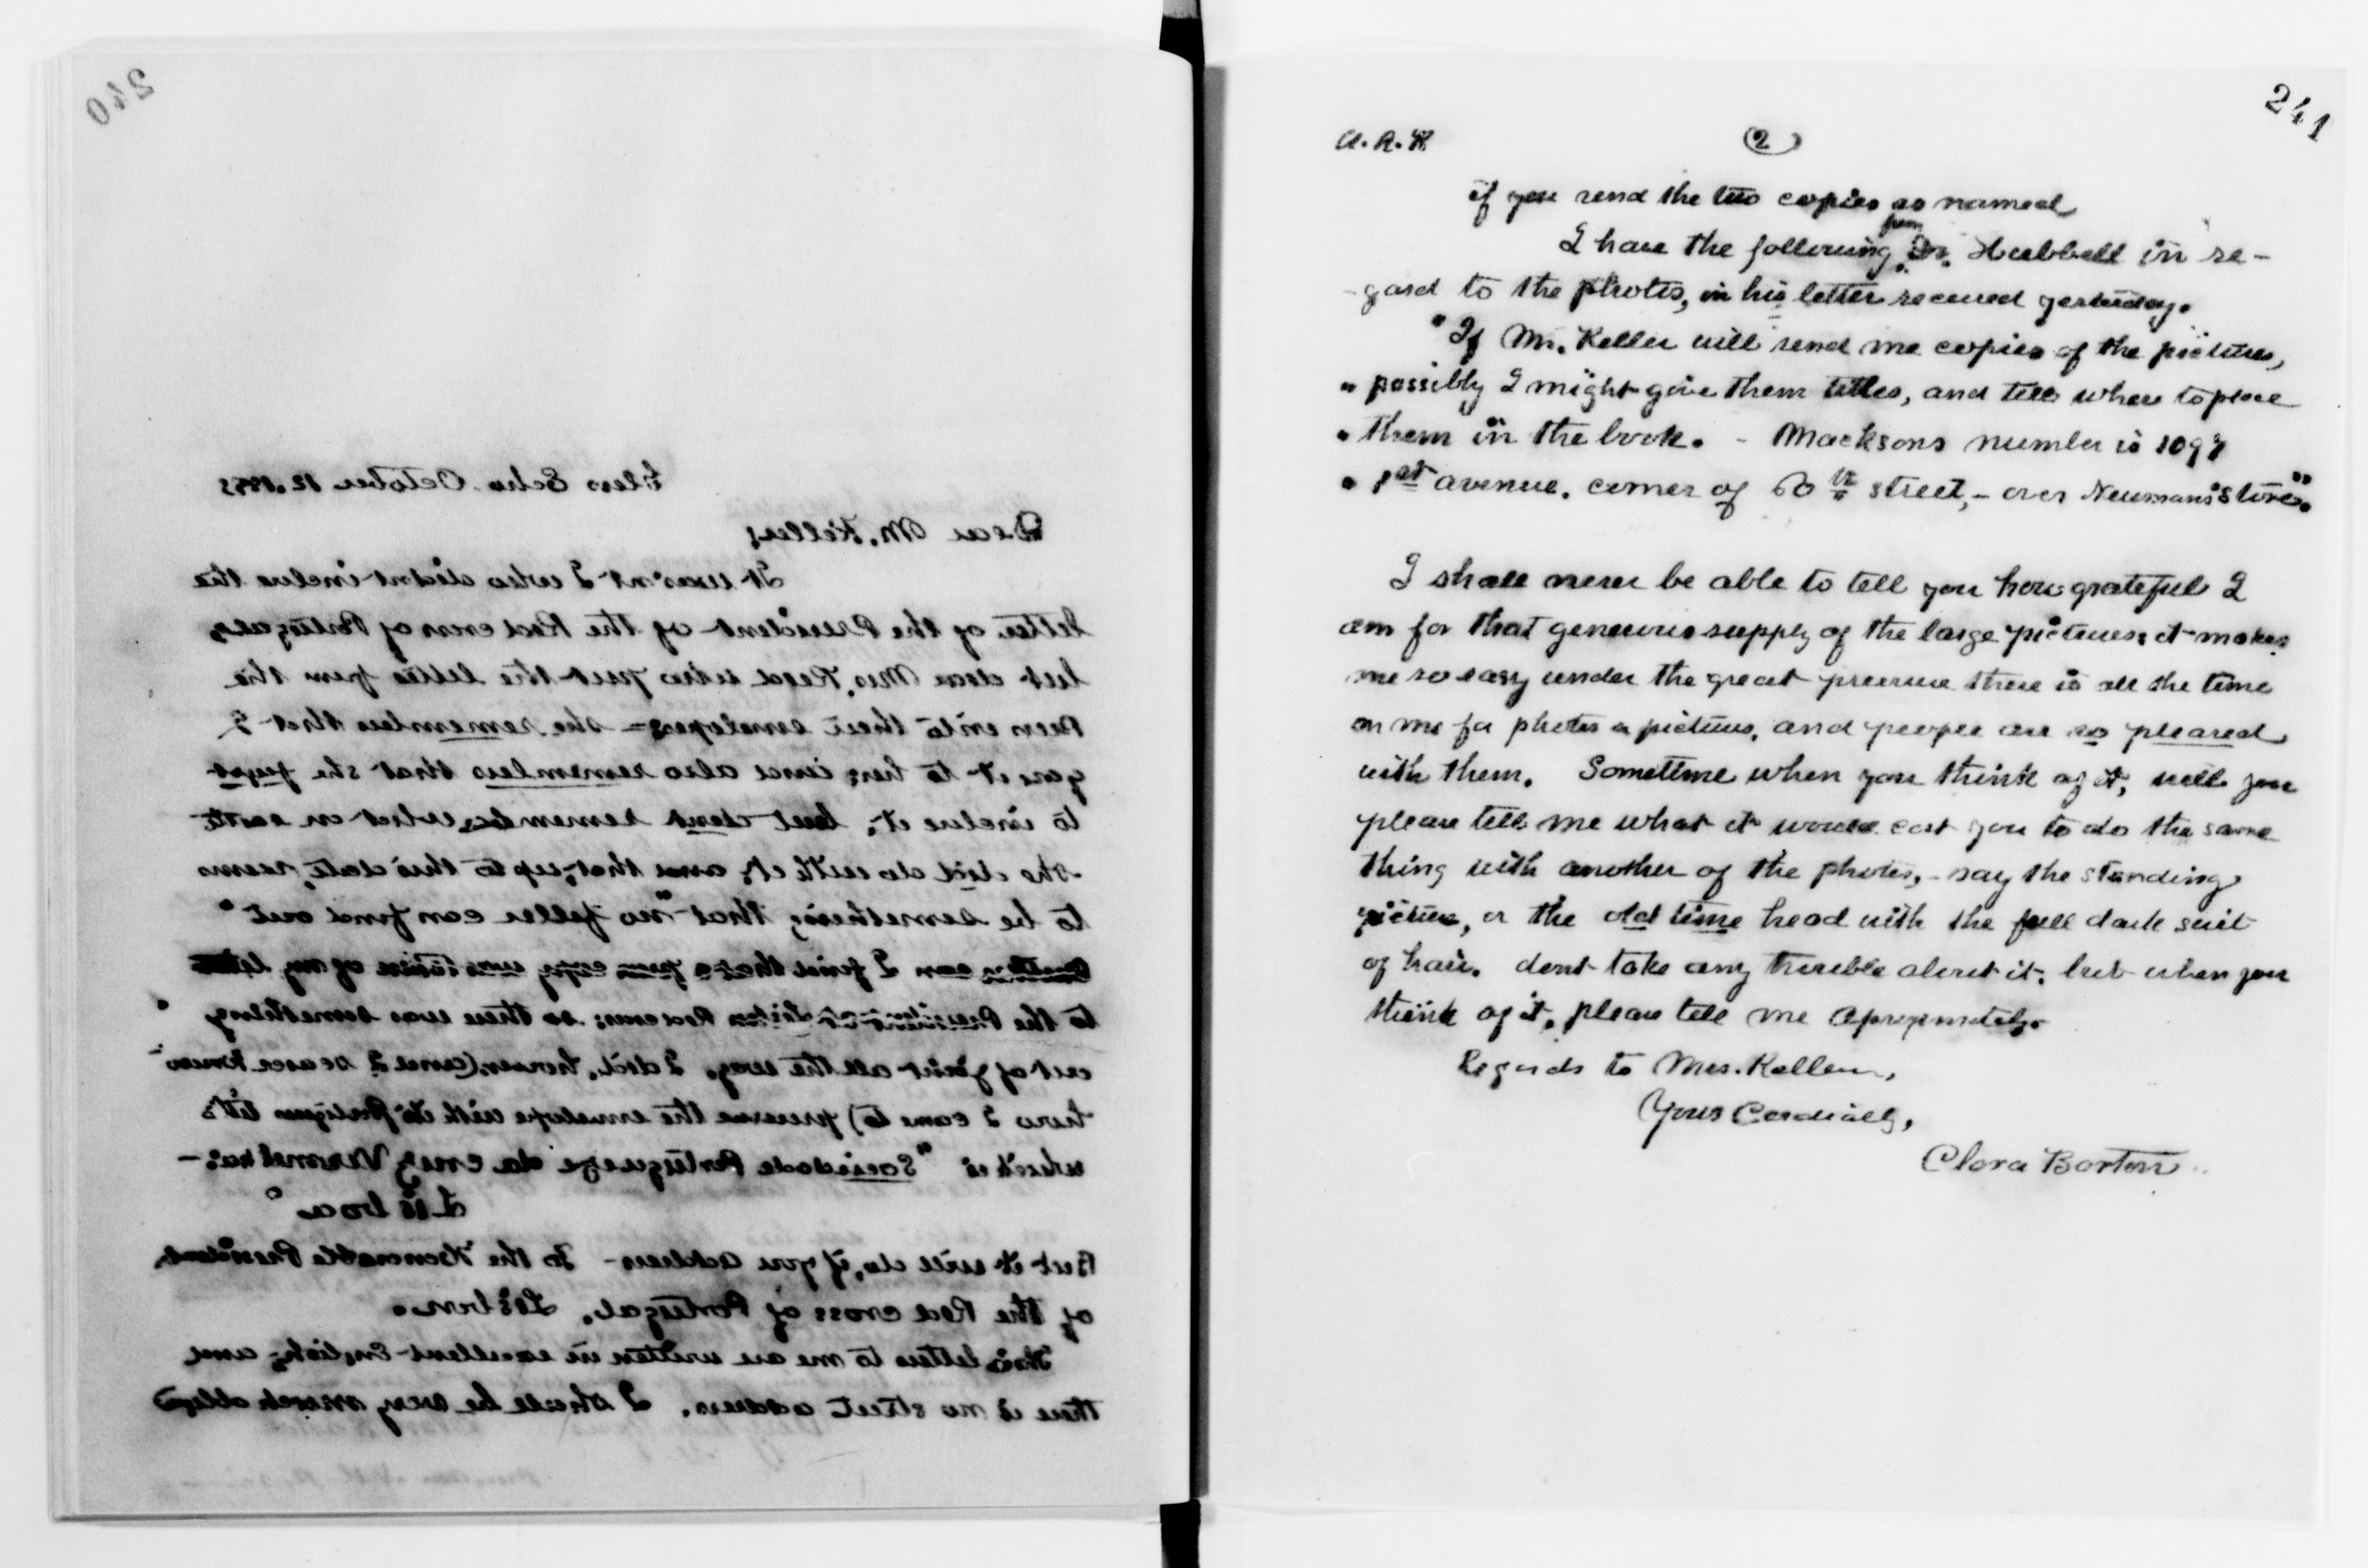 240
Glen Echo October 12.
Dear Mr. Keller;
It wasn't I who didn't inclose the
letter of the President of the Red Cross of Portugal,
but dear Mrs. Read who put the letters from the
Pen into their envelopes — she remembers that I
gave it to her; and also remembers that she forgot
to inclose it, but don't remember what on earth
she did do with it, and that, up to this date, seems
to be something that "no feller can find out"
can I find that
to the President Red Cross: so there was something
out of joint all the way. I did, however, (and I scarce know
how I came to) preserve the envelope with its Portuguese title
which is "Sociedade Portugueze da Cruz Vermelha: —
Lisboa"
But it will do, if you address — To the Honorable President,
of the Red Cross of Portugal. Lisbon.
His letters to me are written in excellent English, and
there is no street address. I shall be very much obliged
241
A.R.K (2)
if you send the two copies as named
I have the following from Dr. Hubbell in re-
-gard to the photos, in his letter received yesterday.
"If Mr. Keller will send me copies of the pictures,
" possibly I might give them titles, and tell where to place
" them in the book. - Macksons number is 1097
" 1st avenue. corner of 60th street, - over Neumans store."
I shall never be able to tell you how grateful I
am for that generous supply of the large pictures; it makes
me so easy under the great pressure there is all the time
on me for photos or pictures, and people are so pleased
with them. Sometime when you think of it, will you
please tell me what it would cost you to do the same
thing with another of the photos, - say the standing
picture, or the old time head with the full dark suit
of hair. dont take any trouble about it; but when you
think of it, please tell me approximately.
Regards to Mrs. Keller,
Yours Cordially,
Clara Barton